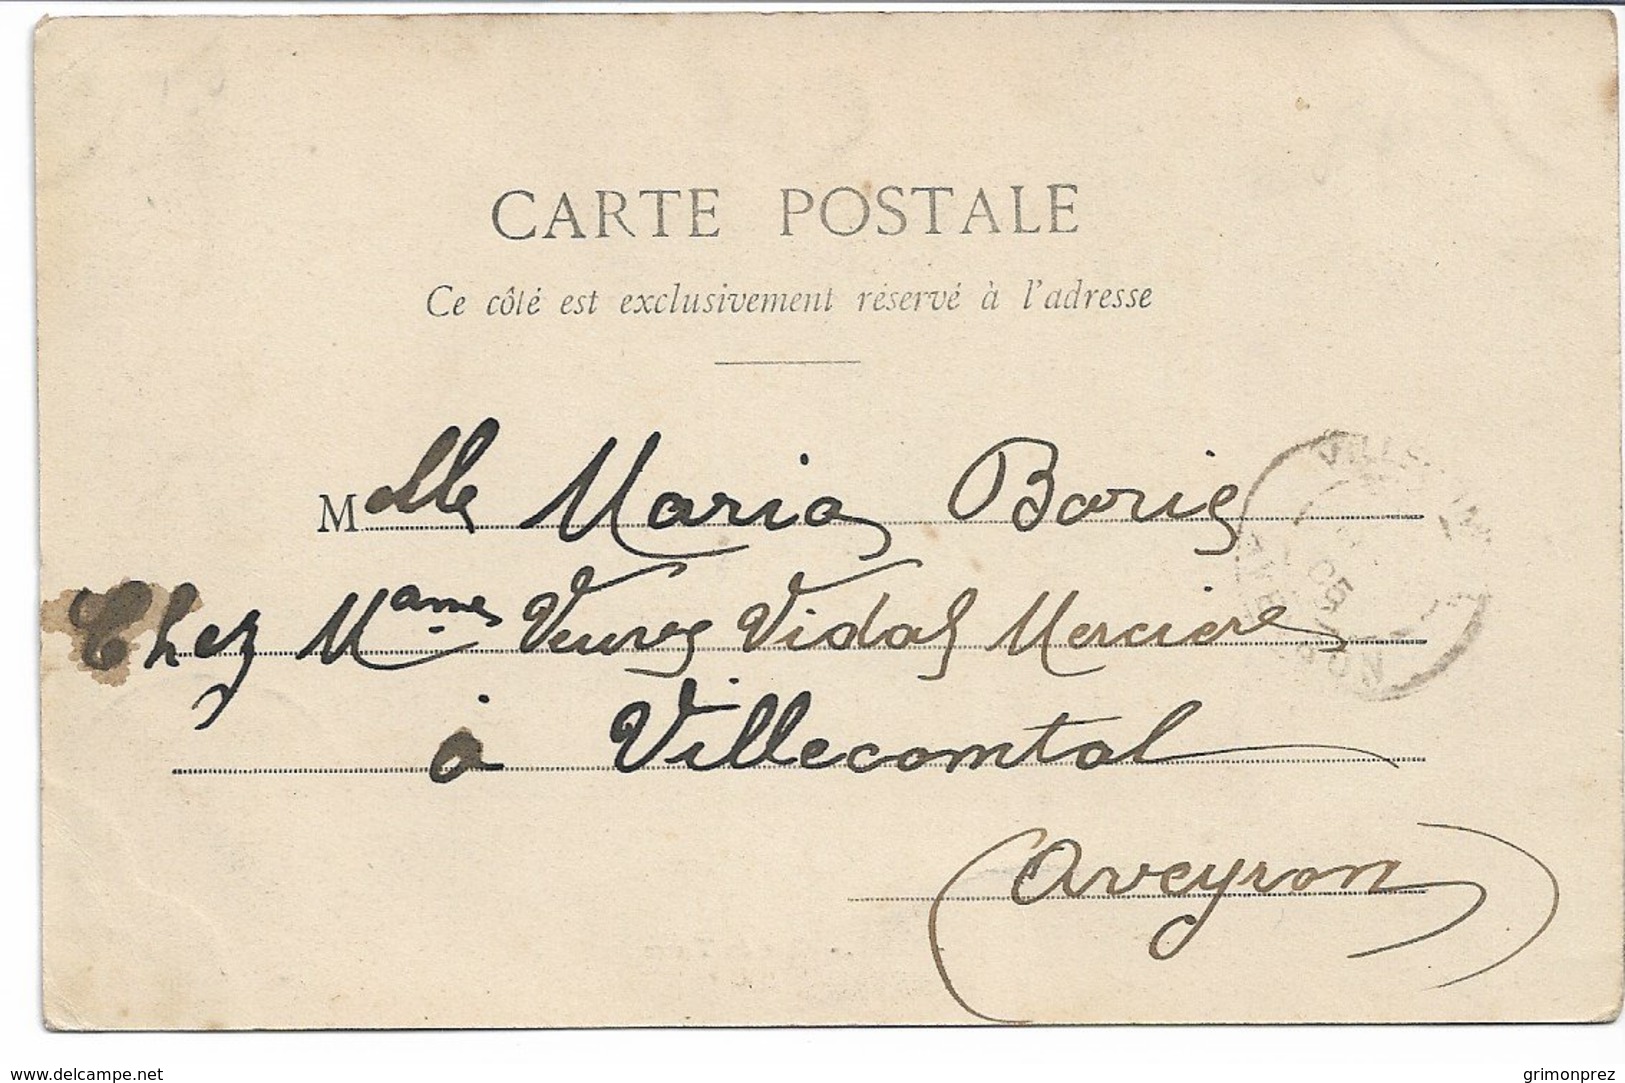 CARTE POSTALE
Ce côté est exclusivement réservé à l'adresse
Melle Maria Borie
Chez Mame Veuve Vidal Mercière
à Villecomtal
(Aveyron)
05
www.delcampe.net
grimonprez